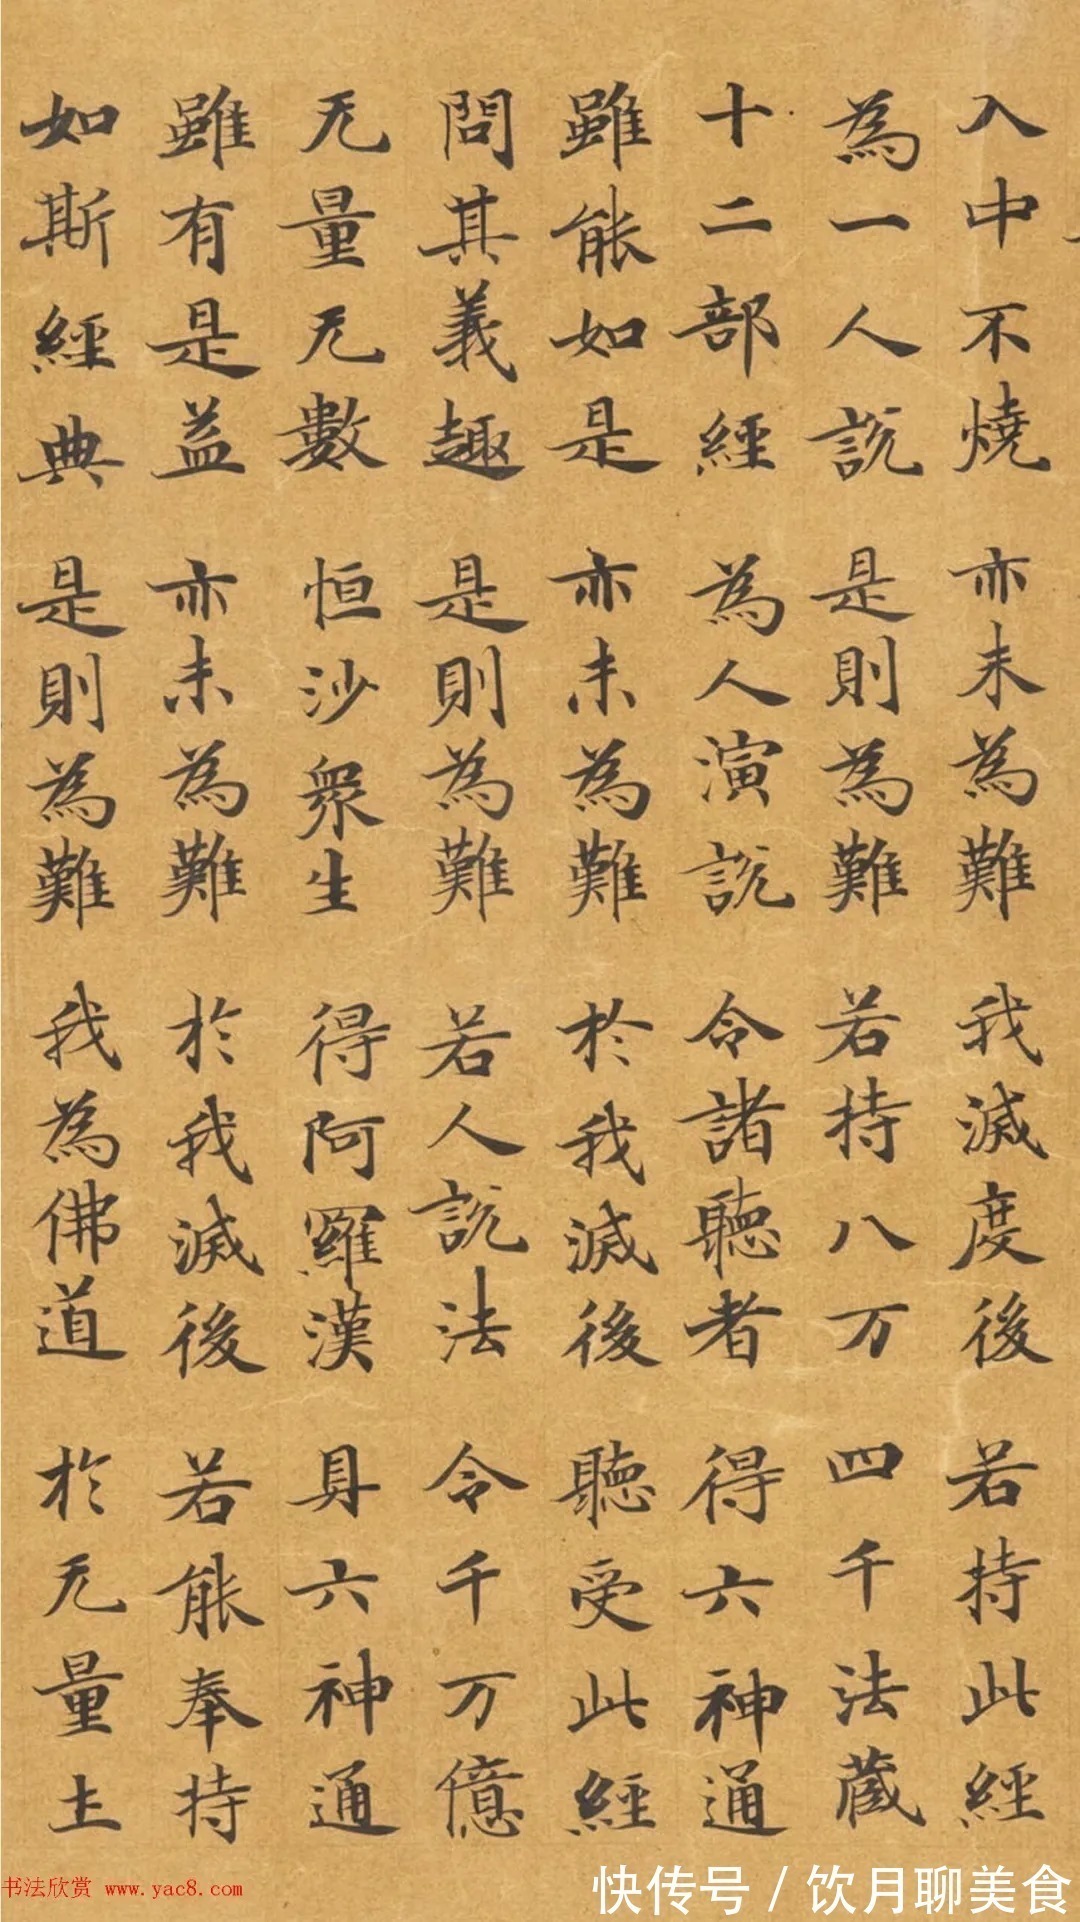 入中不燒 亦未為難 我滅度後 若持此經
為一人說 是則為難 若持八万 四千法藏
十二部經 為人演說 令諸聽者 得六神通
雖能如是 亦未為難 於我滅後 聽受此經
問其義趣 是則為難 若人說法 令千万億
无量无數 恒沙眾生 得阿羅漢 具六神通
雖有是益 亦未為難 於我滅後 若能奉持
如斯經典 是則為難 我為佛道 於无量土
书法欣赏 www.yac8.com
快传号 / 饮月聊美食